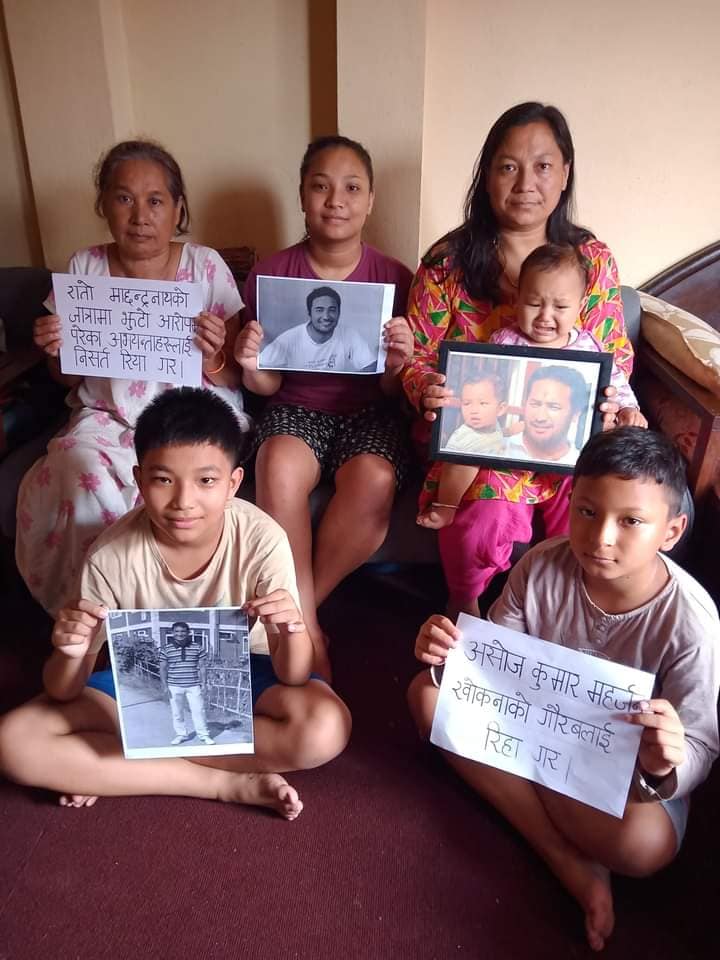 रातो माछन्द्रनाथको
जात्रामा झुटो आरोप
परेका अगयन्ताहरूलाई
निसर्त रिया गर।
असोज कुमार महर्जन
खोकनाको गौरबलाई
रिहा गर।